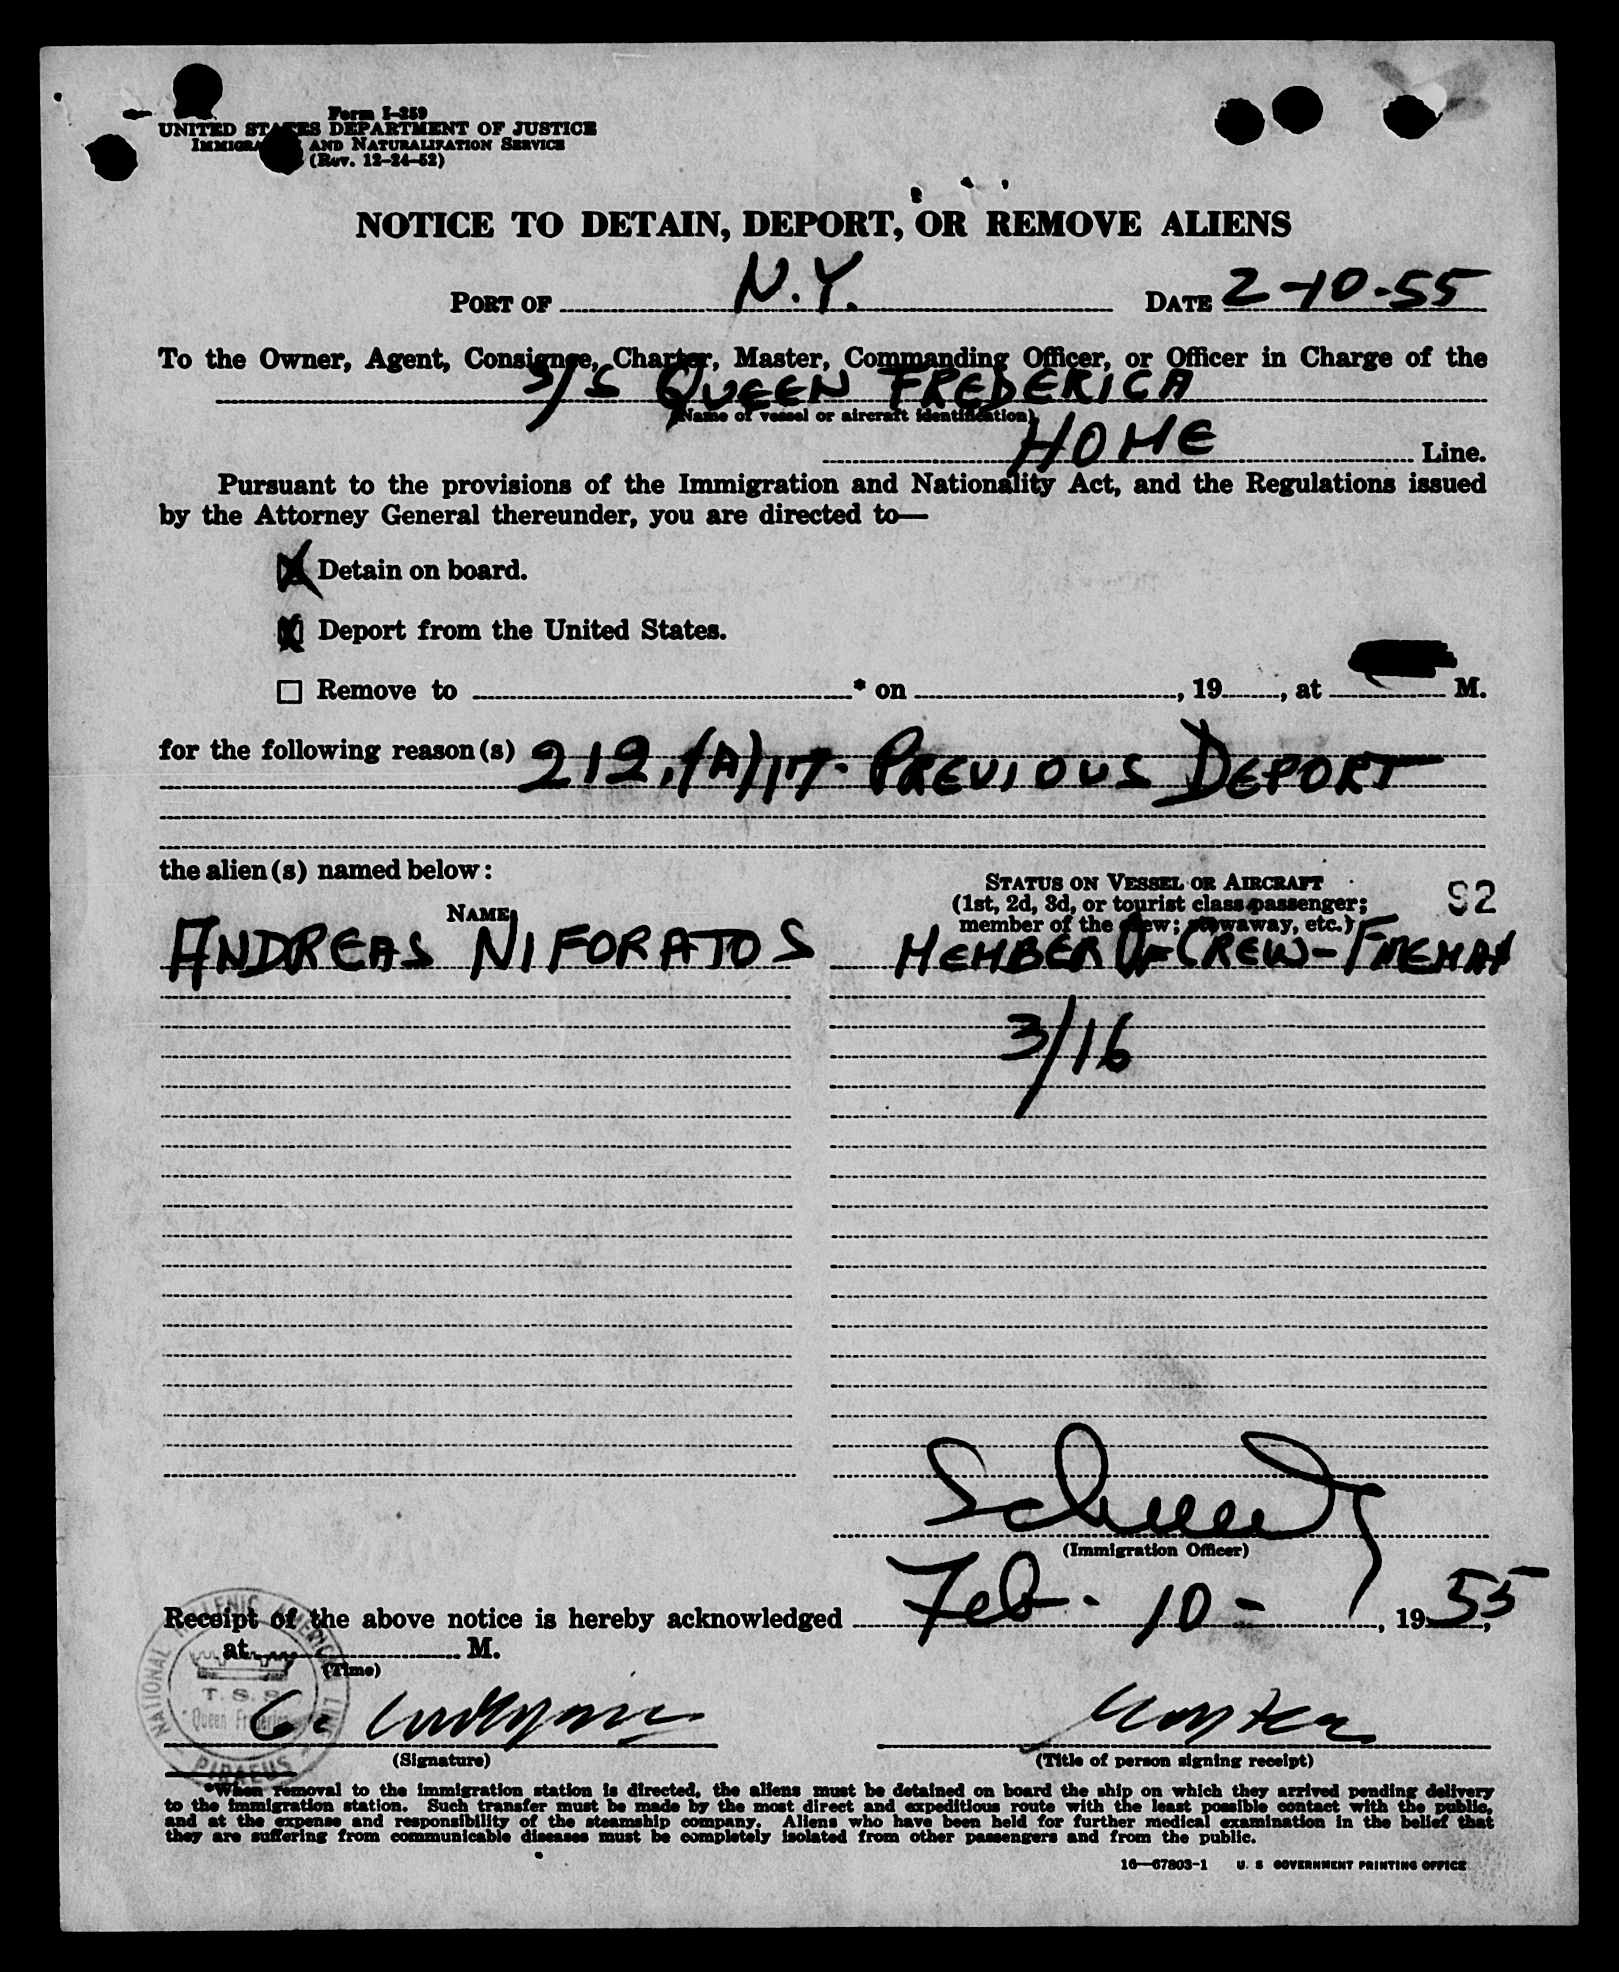 Form I-259
UNITED STATES DEPARTMENT OF JUSTICE
IMMIGRA AND NATURALIZATION SERVICE
(Rev. 12-24-52)
NOTICE TO DETAIN, DEPORT, OR REMOVE ALIENS
PORT OF N.Y. DATE 2-10-55
To the Owner, Agent, Consignee, Charter, Master, Commanding Officer, or Officer in Charge of the
S/S QUEEN FREDERICA
(Name of vessel or aircraft identification)
HOME Line.
Pursuant to the provisions of the Immigration and Nationality Act, and the Regulations issued
by the Attorney General thereunder, you are directed to—
Detain on board.
Deport from the United States.
Remove to * on , 19 , at M.
for the following reason(s) 212.(A)17- PREVIOUS DEPORT
the alien(s) named below:
STATUS ON VESSEL OR AIRCRAFT
(1st, 2d, 3d, or tourist class passenger;
92
NAME
member of the crew; stowaway, etc.)
ANDREAS NIFORATOS MEMBER OF CREW-FIREMAN
3/16
(Immigration Officer)
Receipt of the above notice is hereby acknowledged Feb. 10- , 1955,
at M.
(Time)
NATIONAL HELLENIC AMERICAN LINE
T.S.S.
Queen Frederica
PIRAEUS
(Signature) (Title of person signing receipt)
*When removal to the immigration station is directed, the aliens must be detained on board the ship on which they arrived pending delivery
to the immigration station. Such transfer must be made by the most direct and expeditious route with the least possible contact with the public,
and at the expense and responsibility of the steamship company. Aliens who have been held for further medical examination in the belief that
they are suffering from communicable diseases must be completely isolated from other passengers and from the public.
16—67803-1 U. S GOVERNMENT PRINTING OFFICE